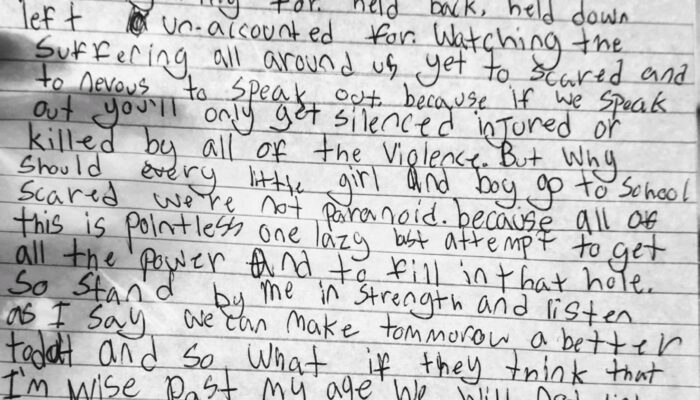 for. held back, held down
left un-accounted for. Watching the
suffering all around us yet to scared and
to nevous to speak out. because if we speak
out you'll only get silenced injured or
killed by all of the Violence. But Why
should every little girl and boy go to School
scared we're not paranoid. because all of
this is pointless one lazy last attempt to get
all the power And to fill in that hole.
So Stand by me in Strength and listen
as I say we can make tommorow a better
today and so what if they think that
I'm wise past my age we will